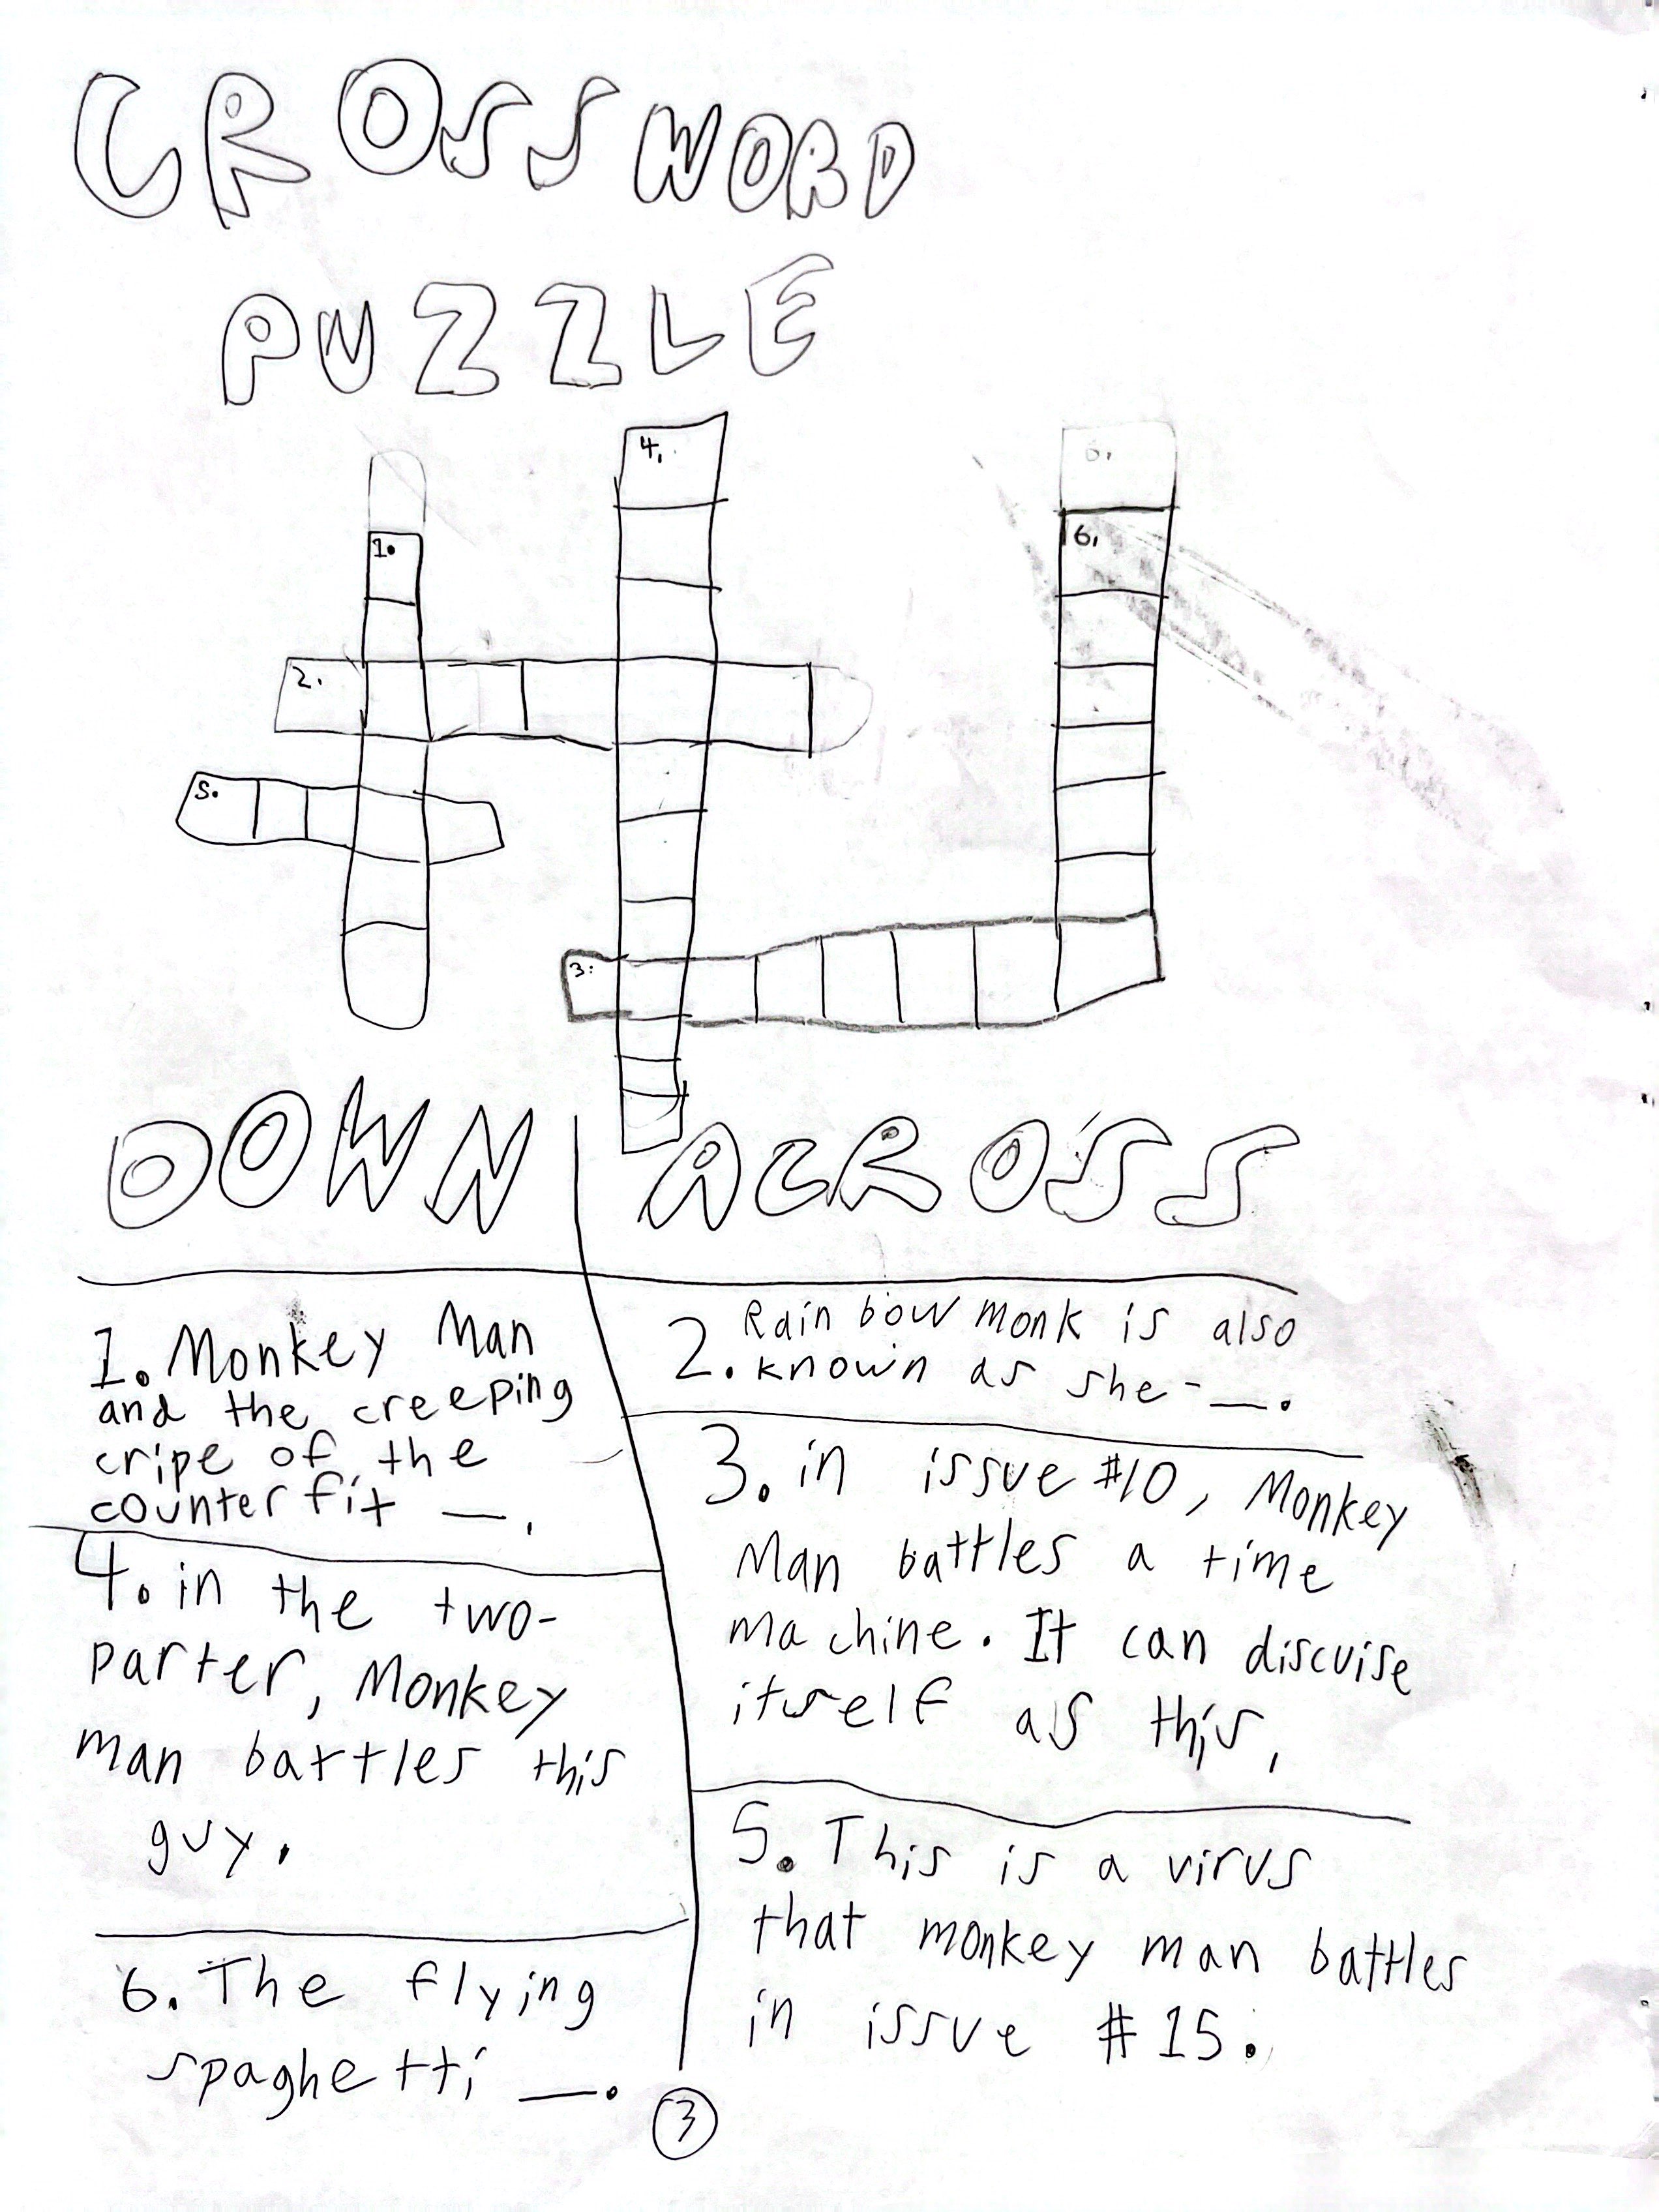 CROSS WORD
PUZZLE
4.
6.
1.
6.
2.
5.
3.
DOWN
ACROSS
1. Monkey Man
and the creeping
cripe of the
counter fit __.
4. in the two-
parter, Monkey
man battles this
guy.
6. The flying
spaghetti __.
2. Rain bow monk is also
known as she-__.
3. in issue #10, Monkey
Man battles a time
machine. It can discuise
itself as this.
5. This is a virus
that monkey man battles
in issue #15.
3